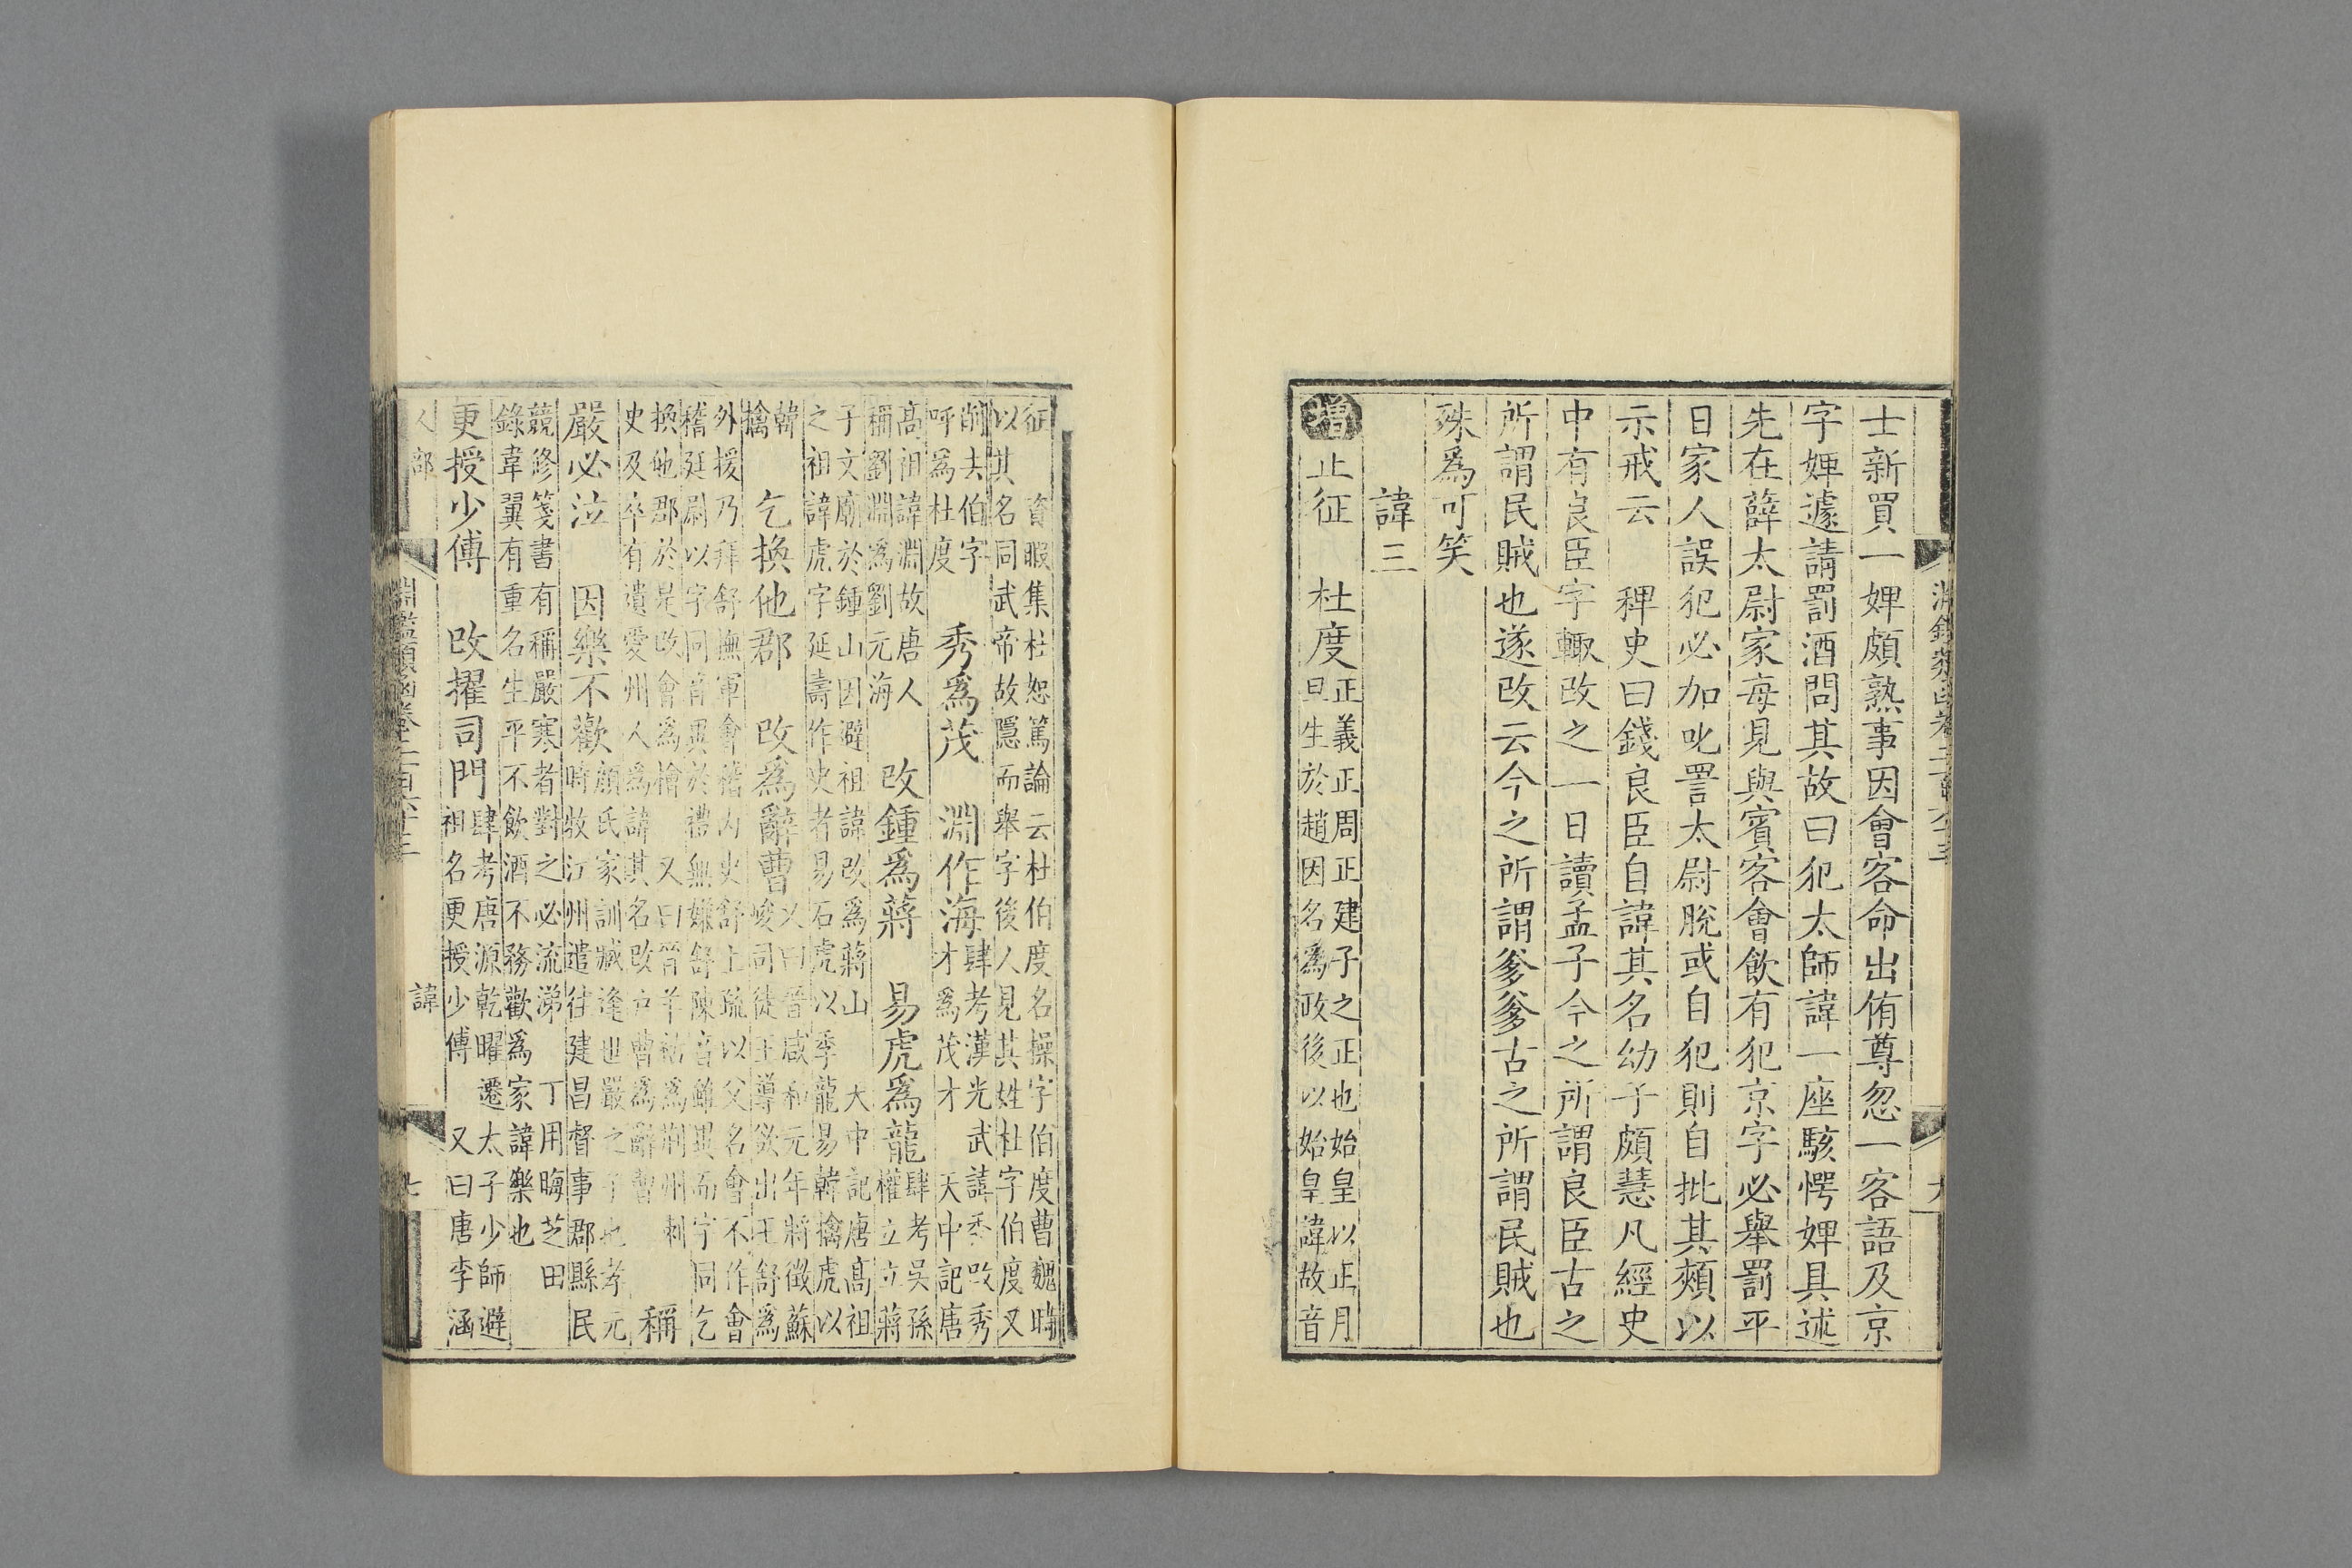 士新買一婢頗熟事因會客命出侑尊忽一客語及京
字婢遽請罰酒問其故曰犯太師諱一座駭愕婢具述
先在薛太尉家每見與賓客會飲有犯京字必舉罰平
日家人誤犯必加叱詈太尉脫或自犯則自批其頰以
示戒云　稗史曰錢良臣自諱其名幼子頗慧凡經史
中有良臣字輙改之一日讀孟子今之所謂良臣古之
所謂民賊也遂改云今之所謂爹爹古之所謂民賊也
殊爲可笑
諱三
增止征　杜度
正義正周正建子之正也始皇以正月
旦生於趙因名爲政後以始皇諱故音
征　資暇集杜恕篤論云杜伯度名操字伯度曹魏時
以其名同武帝故隱而舉字後人見其姓杜字伯度又
削去伯字
呼爲杜度
秀爲茂　淵作海
肆考漢光武諱秀改秀
才爲茂才　天中記唐
高祖諱淵故唐人
稱劉淵爲劉元海
改鍾爲蔣　易虎爲龍
肆考吳孫
權立立蔣
子文廟於鍾山因避祖諱改爲蔣山　大中記唐高祖
之祖諱虎字延壽作史者易石虎以季龍易韓擒虎以
韓
擒
乞換他郡　改爲辭曹
又曰晉咸和元年將徵蘇
峻司徒王導欲出王舒爲
外援乃拜舒撫軍會稽內史舒上疏以父名會不作會
稽廷尉以字同音異於禮無嫌舒陳音雖異而字同乞
換他郡於是改會爲檜　又曰晉羊祜爲荆州刺
史及卒有遺愛州人爲諱其名改戶曹爲辭曹
稱
嚴必泣　因樂不歡
顏氏家訓臧逢世嚴之子也孝元
時牧江州遣往建昌督事郡縣民
競修箋書有稱嚴寒者對之必流涕　丁用晦芝田
錄韋翼有重名生平不飲酒不務歡爲家諱樂也
更授少傅　改擢司門
肆考唐源乾曜遷太子少師避
祖名更授少傅　又曰唐李涵
人部　諱　七